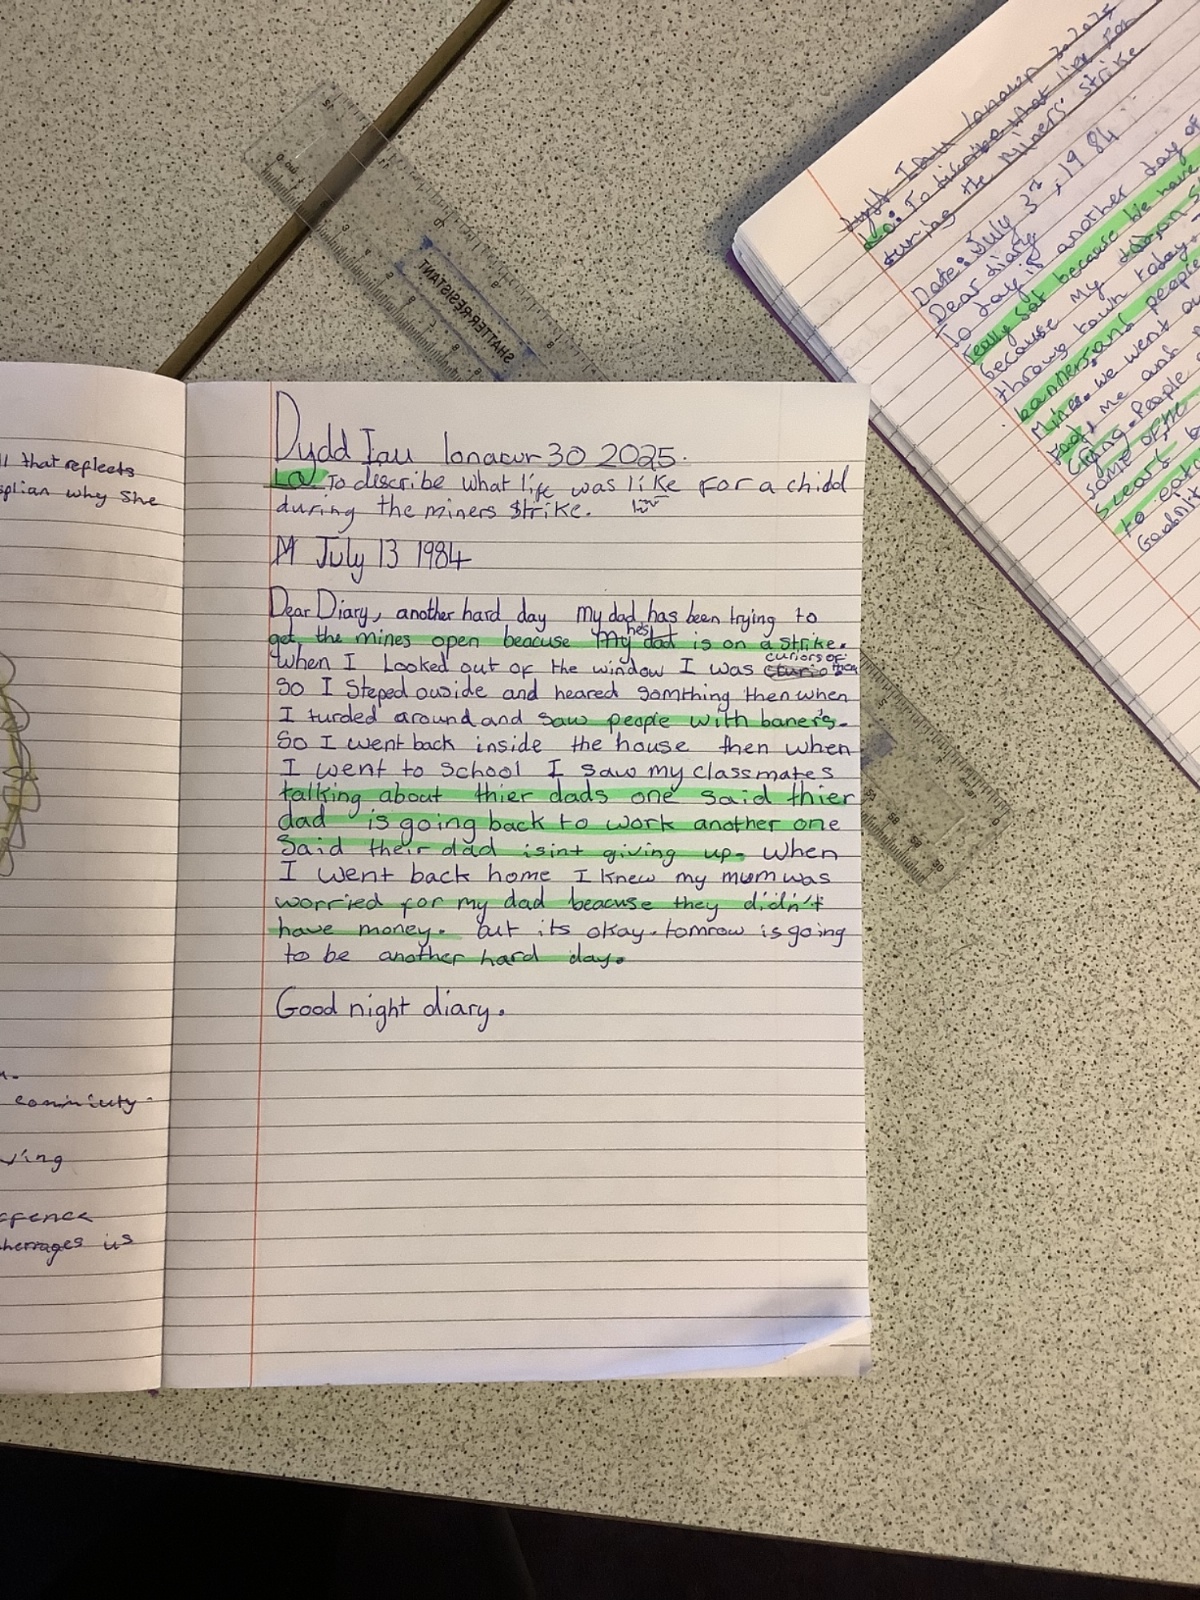 Dydd Iau Ionacur 30 2025.
LO: To describe what life was like for a chidd
during the miners strike.
M July 13 1984
Dear Diary, another hard day my dad has been trying to
get the mines open beacuse my dad is on a strike.
hes
when I Looked out of the window I was curiors of
So I steped ouside and heared somthing then when
I turded around and saw people with baners.
So I went back inside the house then when
I went to School I saw my classmates
talking about thier dads one said thier
dad is going back to work another one
said their dad isint giving up. when
I went back home I knew my mum was
worried for my dad beacuse they didn't
have money. but its okay. tomrow is going
to be another hard day.
Good night diary.
that repleets
splian why She
comminty
ving
herrages is
SHATTER-RESISTANT
Dydd Iau Ionawr 30 2025
LO: To discribe what like for
during the Miners' Strike
Date: July 13, 1984
Dear diary
To day is another day of
really sat because we have
because my
throug town today.
banners and people
Mines. we went
food, me and
crying. People
some of the
to
Goodnit